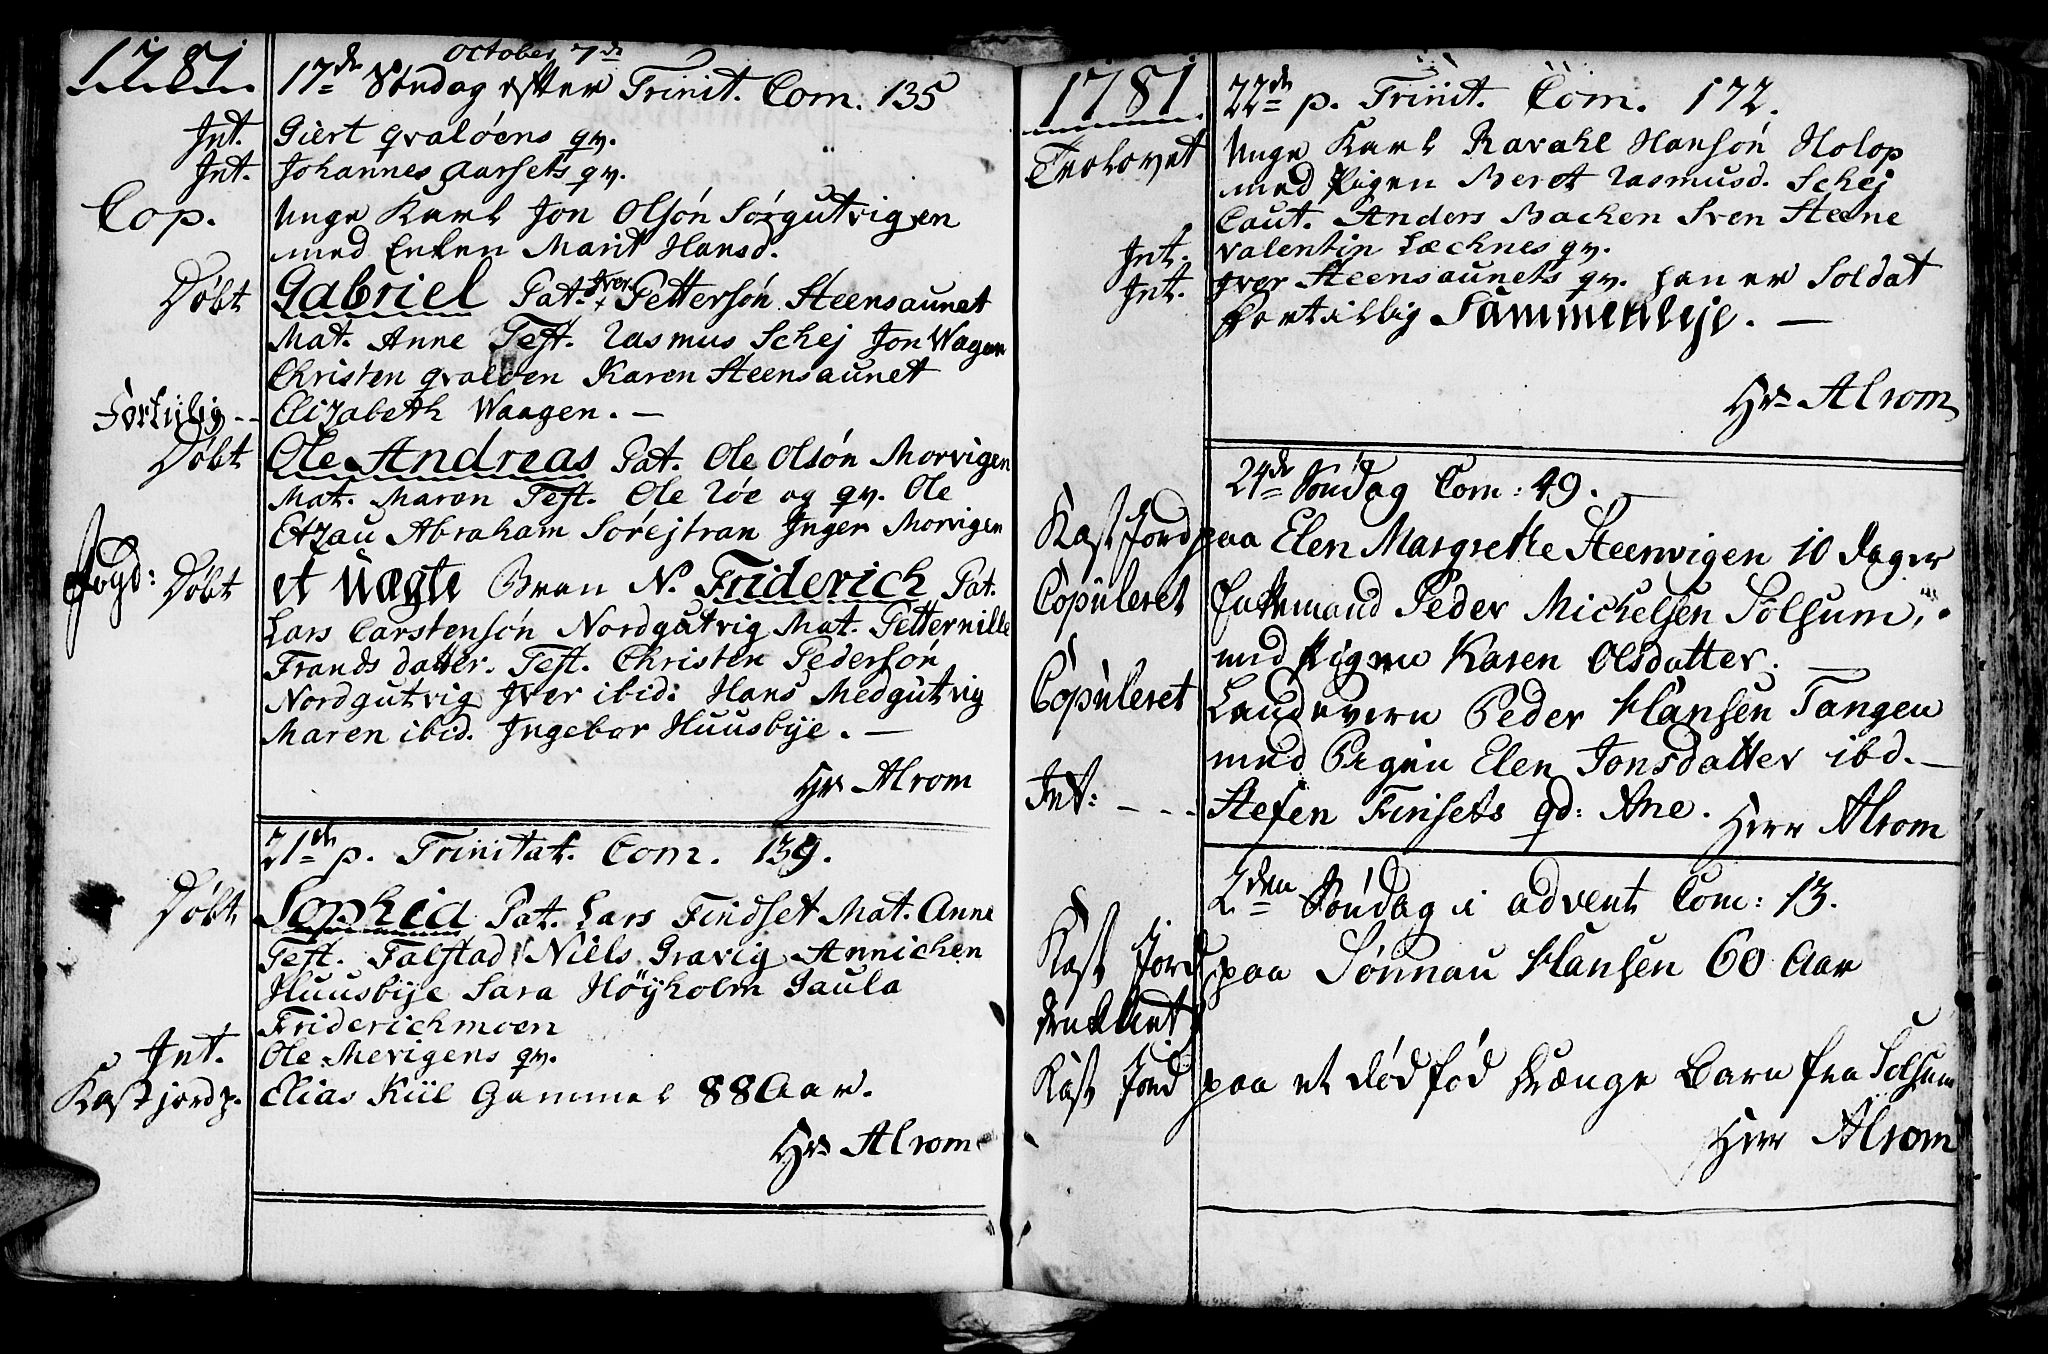 1781.
October 7de
17de Søndag efter Trinit. Com. 135
Int. Giert Qvaløens qv.
Int. Johannes Aarsets qv.
Cop. Unge Karl Jon Olsón Sórgutvigen
med Enken Marit Hansd.
Døbt Gabriel Pat. Iver Pettersón Steensaunet
Mat. Anne Test. Rasmus Schej Jon Wagen
Christen Qvaloen Karen Steensaunet
Fortiilig -- Elizabeth Waagen. —
Døbt Ole Andreas Pat. Ole Olsón Morvigen
Mat. Maren Test. Ole Róe og qv. Ole
Etzau Abraham Sorejtran Inger Morvigen
Døbt et Uægte Bren N. Friderich Pat.
Lars Carstensón Nordgutvig Mat. Petternille
Frands datter. Test. Christen Pedersón
Nordgutvig Iver ibid: Hans Medgutvig
Maren ibid. Ingebor Huusbije. —
Hr Alrom
21de p. Trinitat. Com. 139.
Døbt Sophia Pat. Lars Findset Mat. Anne
Test. Falstad Niels Gravig Annichen
Huusbije Sara Höyholm Paula
Friderichmoen
Int. Ole Mevigens qv.
Kast jord p. Elias Kiil Gammel 88 Aar.
Hr Alrom
1781.
22de p. Trinit. Com. 172.
Trolovet Unge Karl Ravahl Hansón Holop
med Pigen Beret Rasmusd. Schej
Caut. Anders Backen Sven Steene
Int. Valentin Læchnes qv.
Int. Iver Steensaunets qv. han er Soldat
fortillig Sammenleje. —
Hr Alrom
24de Søndag Com: 49.
Kast Jord paa Elen Margrethe Steenvigen 10 Dager
Copuleret Enkemand Peder Michelsen Solsum,
med Pigen Karen Olsdatter. —
Copuleret Landevern Peder Hansen Tangen
med Pigen Elen Jonsdatter ibd. —
Int: - - - Stefen Finsets qd: Ane.
Herr Alrom
2den Søndag i advent Com: 13.
Kast Jord paa Sønnau Hansen 60 Aar
Kast Jord paa et dødfød Drænge Barn fra Solsum
Herr Alrom